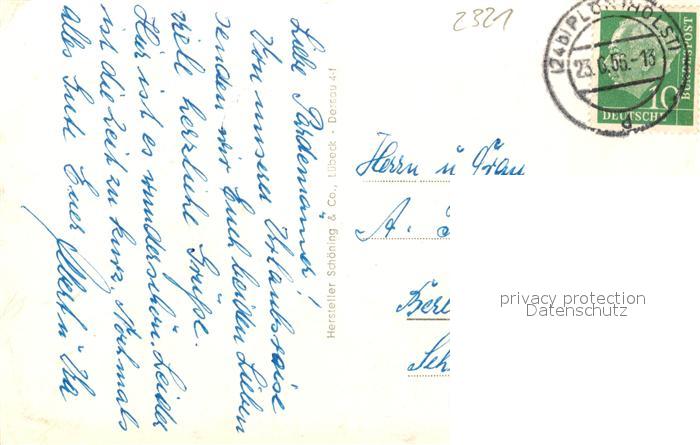 2321
(24b) PLÖN (HOLST)
23.6.56.-13
d
10
DEUTSCHE
BUNDESPOST
Liebe
Von unserer Urlaubsreise
senden wir Euch beiden Lieben
viele herzliche Grüße.
Hier ist es wunderschön. Leider
ist die Zeit zu kurz. Nochmals
alles Gute Euer Albert u
Hersteller Schöning & Co., Lübeck - Dessau 4-1
Herrn u Frau
A.
Berl
privacy protection
Datenschutz